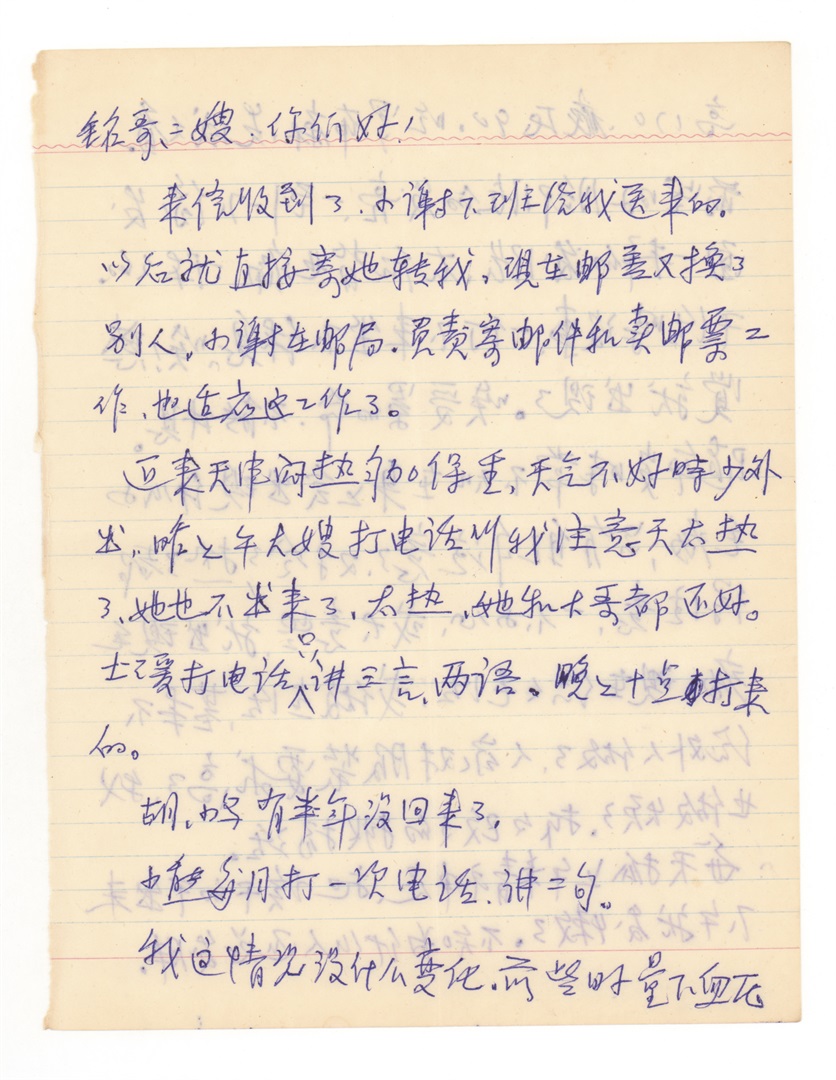 铭哥、二嫂：你们好！
来信收到了、小谢下班给我送来的。
以后就直接寄她转我，现在邮差又换了
别人，小谢在邮局．负责寄邮件和卖邮票工
作、也适应这工作了。
近来天气闷热多保重，天气不好时少外
出，昨上午大嫂打电话叫我注意天太热
了、她也不出来了，太热，她和大哥都还好。
打电话只讲三言、两语。晚上十点打来
的。
胡、小 有半年没回来了，
小 每月打一次电话、讲二句。
我这情况没什么变化．前些时量下血压